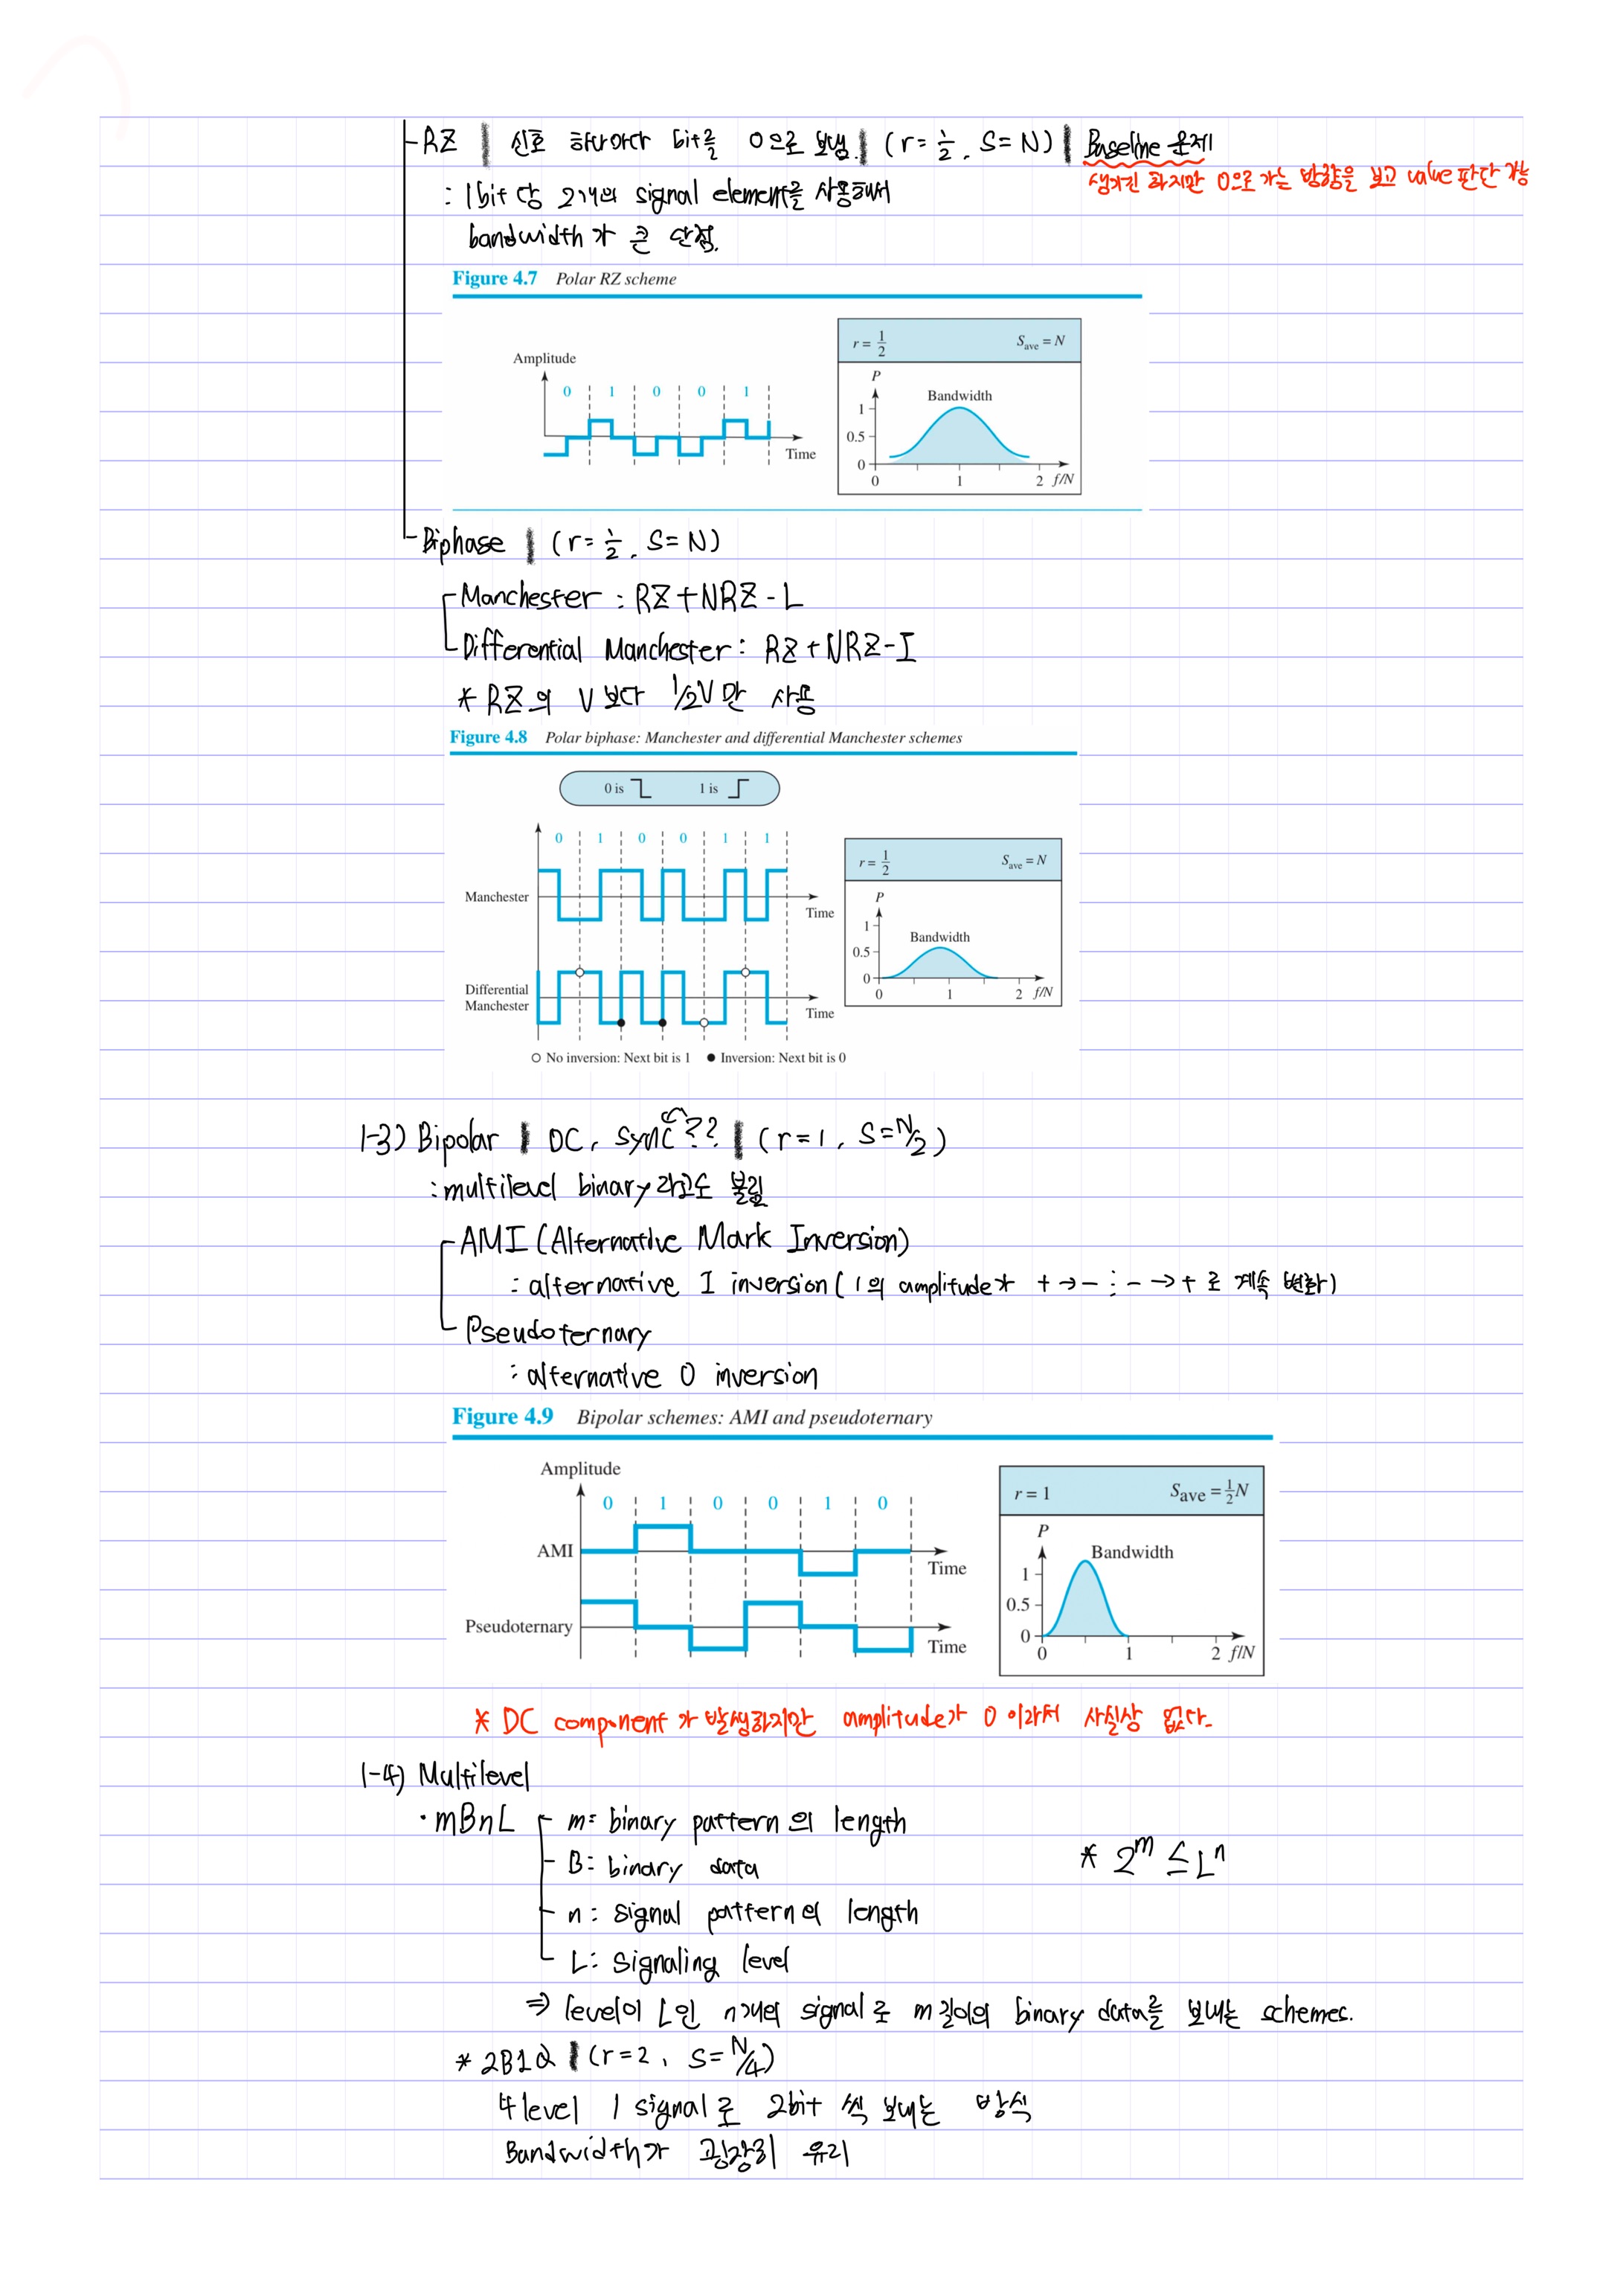 -RZ | 신호 하나마다 bit를 0으로 보냄. | (r=1/2, S=N) | Baseline 문제
생기긴 하지만 0으로 가는 방향을 보고 value 판단 가능
: 1bit 당 2개의 signal element를 사용해서
bandwidth가 큰 단점.
Figure 4.7 Polar RZ scheme
r = 1/2 Save = N
Amplitude
P
0 1 0 0 1
Bandwidth
1
0.5
Time
0
0 1 2 f/N
-Biphase | (r=1/2, S=N)
-Manchester : RZ+NRZ-L
-Differential Manchester: RZ+NRZ-I
* RZ의 V 보다 1/2V만 사용
Figure 4.8 Polar biphase: Manchester and differential Manchester schemes
0 is 1 is
0 1 0 0 1 1
r = 1/2 Save = N
Manchester
Time
P
1
Bandwidth
0.5
0
0 1 2 f/N
Differential
Manchester
Time
○ No inversion: Next bit is 1 ● Inversion: Next bit is 0
1-3) Bipolar | DC, Sync?? | (r=1, S=N/2)
: multilevel binary라고도 불림
-AMI (Alternative Mark Inversion)
: alternative 1 inversion (1의 amplitude가 +→- ; -→+ 로 계속 변화)
-Pseudoternary
: alternative 0 inversion
Figure 4.9 Bipolar schemes: AMI and pseudoternary
Amplitude
0 1 0 0 1 0
r = 1 Save = 1/2N
AMI
Time
P
Bandwidth
1
0.5
0
0 1 2 f/N
Pseudoternary
Time
* DC component가 발생하지만 amplitude가 0 이라서 사실상 없다.
1-4) Multilevel
· mBnL - m: binary pattern의 length
- B: binary data
* 2^m ≤ L^n
- n: signal pattern의 length
- L: Signaling level
⇒ level이 L인 n개의 signal로 m길이의 binary data를 보내는 schemes.
* 2B1Q | (r=2, S=N/4)
4level 1 signal로 2bit 씩 보내는 방식
Bandwidth가 굉장히 유리